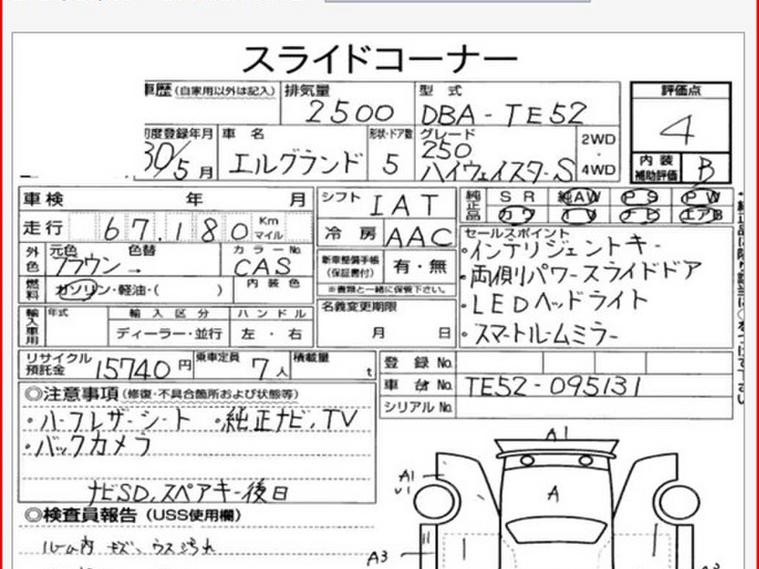 スライドコーナー
車歴 (自家用以外は記入) 排気量 2500 型式 DBA-TE52 評価点 4
初度登録年月 30/5月 車名 エルグランド 形状・ドア数 5 グレード 250 ハイウェイスターS 2WD・4WD 内装補助評価 B
車検 年 月 シフト IAT 純正品 SR 純AW PS PW
カワ ナビ エアB
走行 67,180 Km マイル 冷房 AAC
外色 元色 ブラウン → 色替 カラーNo. CAS
新車整備手帳(保証書付) 有・無
※書類と一緒に保管下さい。
燃料 ガソリン・軽油・( ) 内装色
輸入車用 年式 輸入区分 ディーラー・並行 ハンドル 左・右
名義変更期限 月 日
セールスポイント
・インテリジェントキー
・両側パワースライドドア
・LEDヘッドライト
・スマートルームミラー
リサイクル預託金 15740円 乗車定員 7人 積載量 t
登録No.
車台No. TE52-095131
シリアルNo.
◎注意事項 (修復・不具合箇所および状態等)
・ハーフレザーシート ・純正ナビ,TV
・バックカメラ
ナビSD,スペアキー後日
◎検査員報告 (USS使用欄)
ルーム内 キズ、ウス汚れ
A1
A1
A
A3